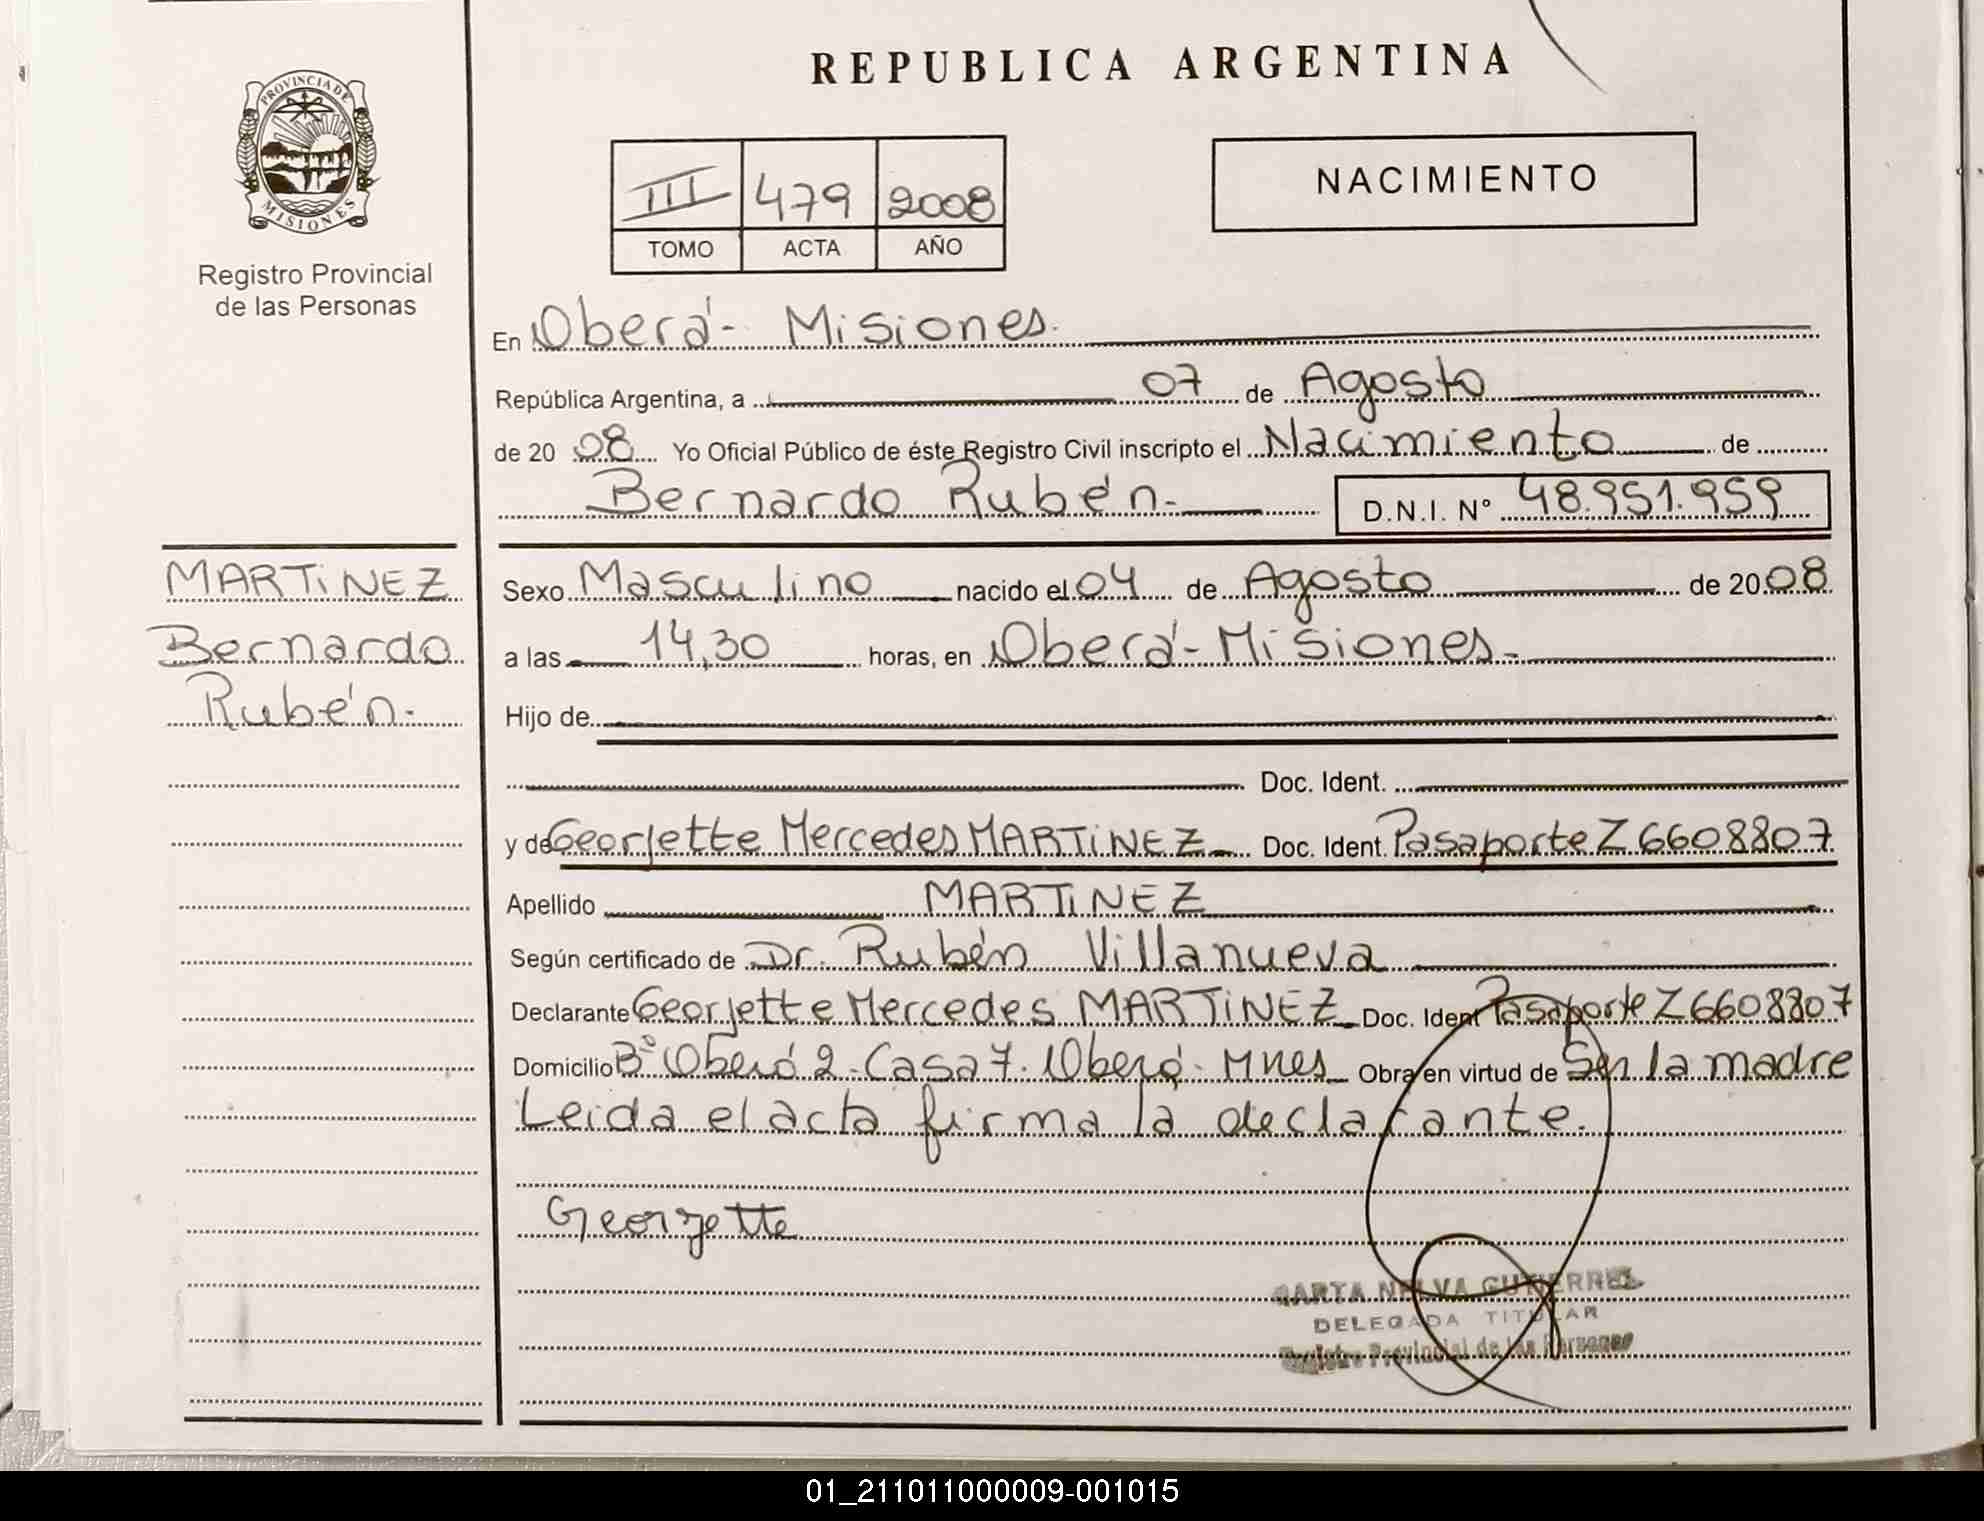 REPUBLICA ARGENTINA
PROVINCIA DE
MISIONES
Registro Provincial
de las Personas
III 479 2008
TOMO ACTA AÑO
NACIMIENTO
En Oberá - Misiones.
República Argentina, a 07 de Agosto
de 20 08 Yo Oficial Público de éste Registro Civil inscripto el Nacimiento de
Bernardo Rubén.- D.N.I. Nº 48.951.959
MARTiNEZ
Bernardo
Rubén.-
Sexo Masculino nacido el 04 de Agosto de 20 08
a las 14,30 horas, en Oberá - Misiones.-
Hijo de
Doc. Ident.
y de Georjette Mercedes MARTiNEZ Doc. Ident. Pasaporte Z6608807
Apellido MARTiNEZ
Según certificado de Dr. Rubén Villanueva
Declarante Georjette Mercedes MARTiNEZ Doc. Ident Pasaporte Z6608807
Domicilio Bº Oberá 2 - Casa 7. Oberá - Mnes Obra en virtud de Ser la madre
Leida el acta firma la declarante.
Georjette
NELVA GUTIERREZ
DELEGADA TITULAR
Registro Provincial de las Personas
01_211011000009-001015